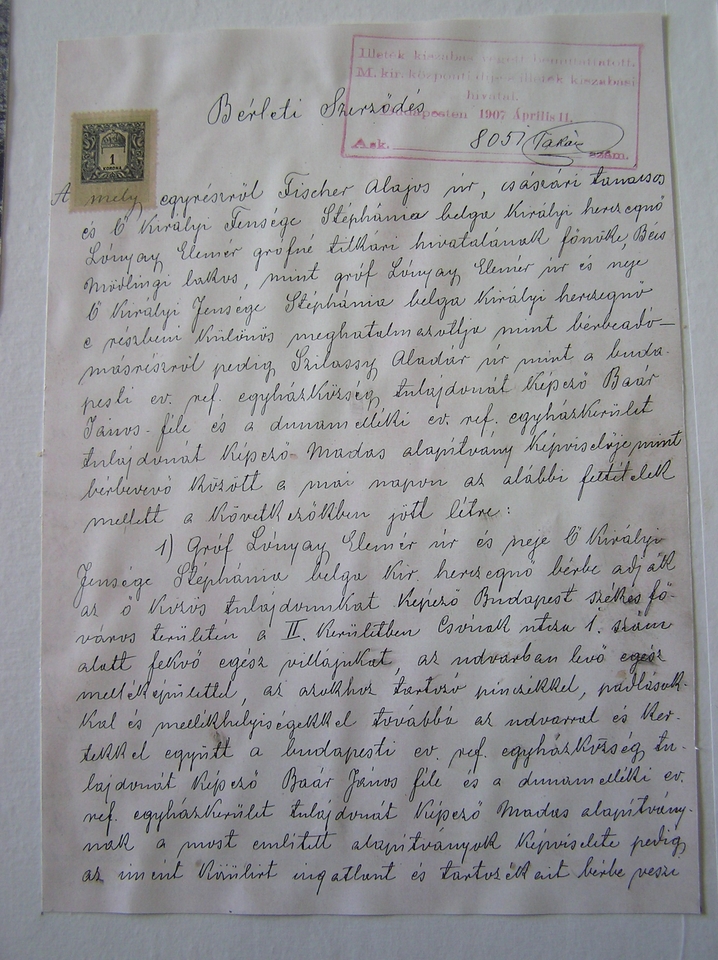 Illeték kiszabás végett bemutattatott.
M. kir. központi díj- és illeték kiszabási
hivatal.
Budapesten 1907 Április 11.
A sk. 8051 szám.
Bérleti Szerződés
1
KORONA
A mely egyrészről Fischer Alajos úr, császári tanácsos
és Ő Királyi Fensége Stéphánia belga Királyi herczegnő
Lónyay Elemér grófné titkári hivatalának főnöke, Bécs
Mödlingi lakos, mint gróf Lónyay Elemér úr és neje
Ő Királyi Fensége Stéphánia belga Királyi herczegnő
e részbeni különös meghatalmazottja mint bérbeadó –
másrészről pedig Szilassy Aladár úr mint a buda-
pesti ev. ref. egyházközség tulajdonát képező Baár
János-féle és a dunamelléki ev. ref. egyházkerület
tulajdonát képező Madas alapítvány képviselője mint
bérbevevő között a mai napon az alábbi feltételek
mellett a következőkben jött létre:
1) Gróf Lónyay Elemér úr és neje Ő Királyi
Fensége Stéphánia belga kir. herczegnő bérbe adják
az ő közös tulajdonukat képező Budapest székes fő-
város területén a II. kerületben Csónak utcza 1. szám
alatt fekvő egész villájukat, az udvarban levő egész
melléképülettel, az azokhoz tartozó pinczékkel, padlások-
kal és mellékhelyiségekkel továbbá az udvarral és ker-
tekkel együtt a budapesti ev. ref. egyházközség tu-
lajdonát képező Baár János féle és a dunamelléki ev.
ref. egyházkerület tulajdonát képező Madas alapítvány-
nak a most említett alapítványok képviselete pedig
az imént körülírt ingatlant és tartozékait bérbe veszi